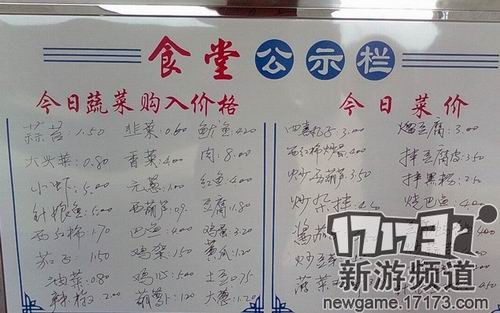 食堂公示栏
今日蔬菜购入价格
蒜苔 1.50 韭菜 0.60 鲅鱼 4.20
大头菜 0.80 香菜 4.00 肉 8.00
小虾 5.00 元葱 1.00 红鱼 4.00
针娘鱼 5.00 西葫芦 0.9 豆腐 1.80
西红柿 1.70 巴鱼 4.00 鸡蛋 3.20
茄子 1.50 鸡架 1.50 黄瓜 1.20
油菜 0.80 鸡心 5.00 土豆 0.75
辣椒 2.00 葫萝卜 1.20 大葱 1.20
今日菜价
3.00 熘豆腐 3.00
西红柿炒 4.00 拌豆腐皮 3.50
炒西葫芦 3.50 拌黑粉 2.50
炒杂拌 4.50 烧巴鱼
酱茄
炒豆芽
菠菜
17173
新游频道
newgame.17173.com